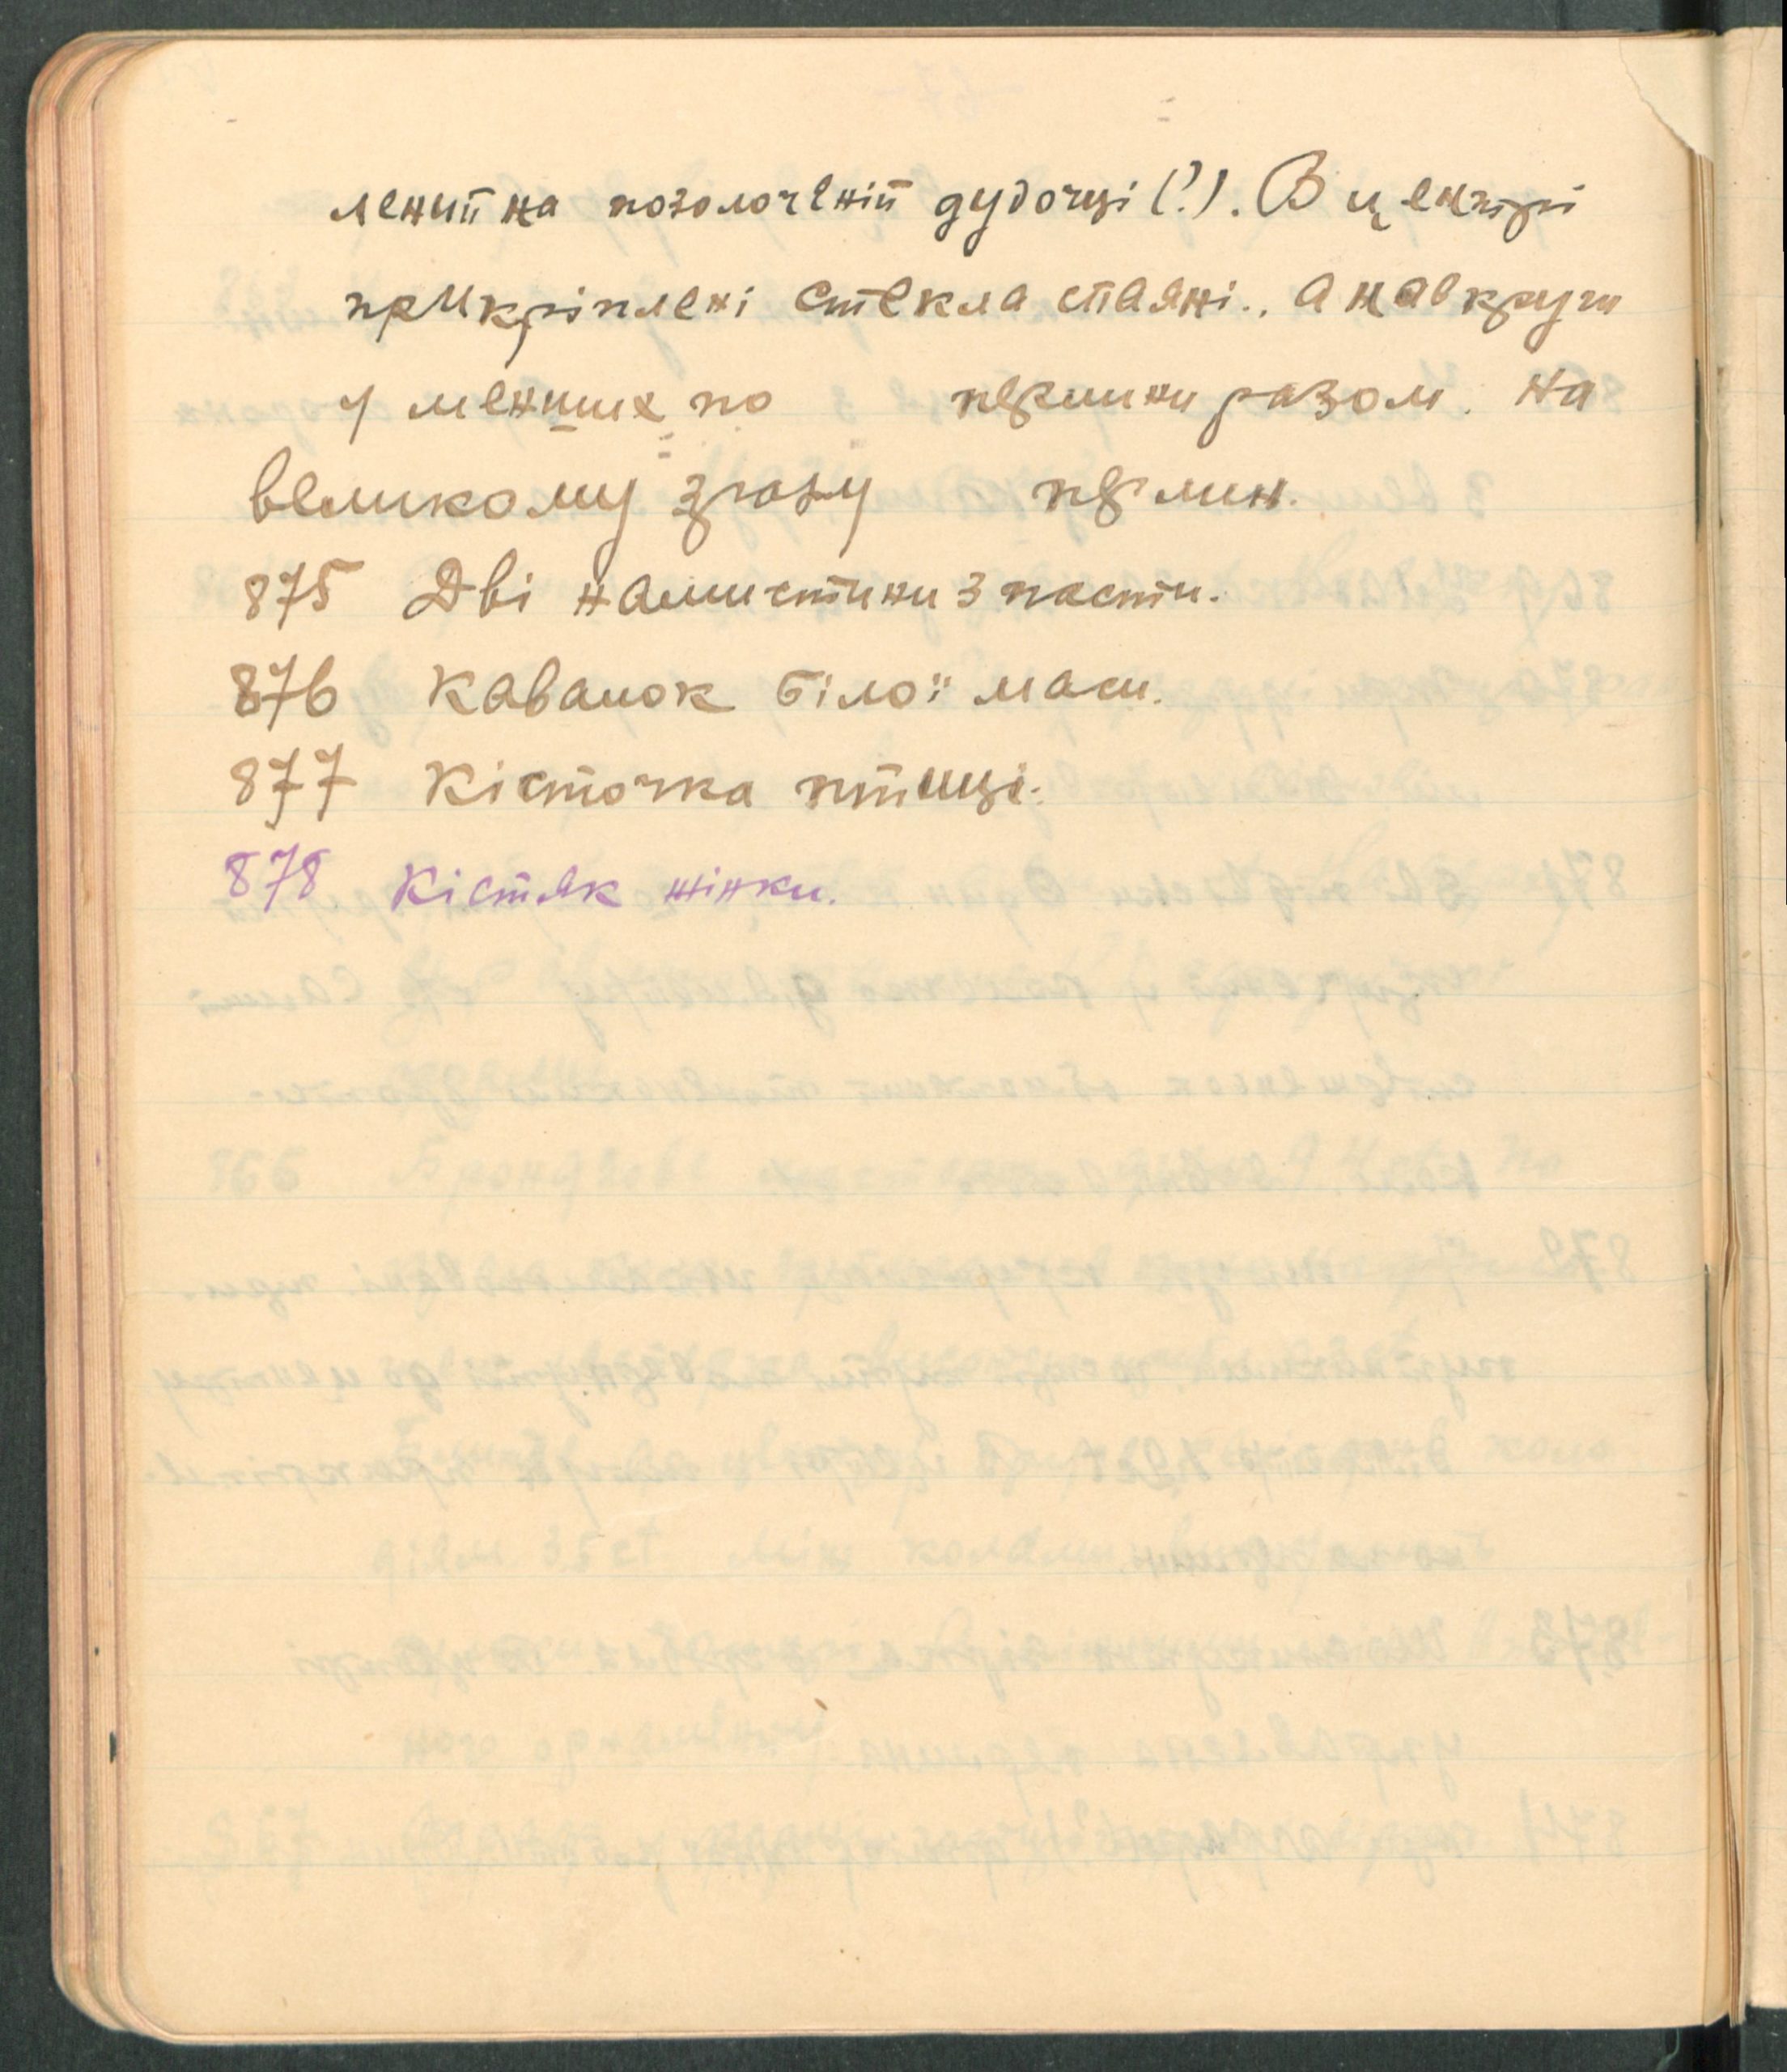 лений на позолоченій дудочці (?). В центрі
прикріплені стекла спаяні.. а навкруги
4 менших по перлини разом. на
великому зразу перлин.
875 Дві намистини з пасти.
876 Кавалок білої маси.
877 Кісточка птиці.
878 Кістяк жінки.